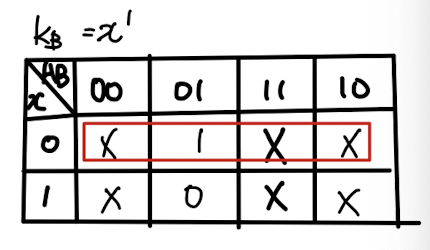 K_B = x'
x\AB 00 01 11 10
0 X 1 X X
1 X 0 X X